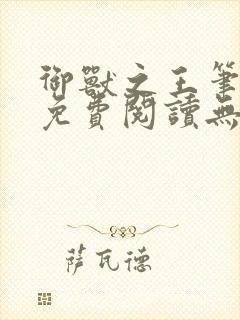 御獸之王筆
免費閱讀無
薩瓦德